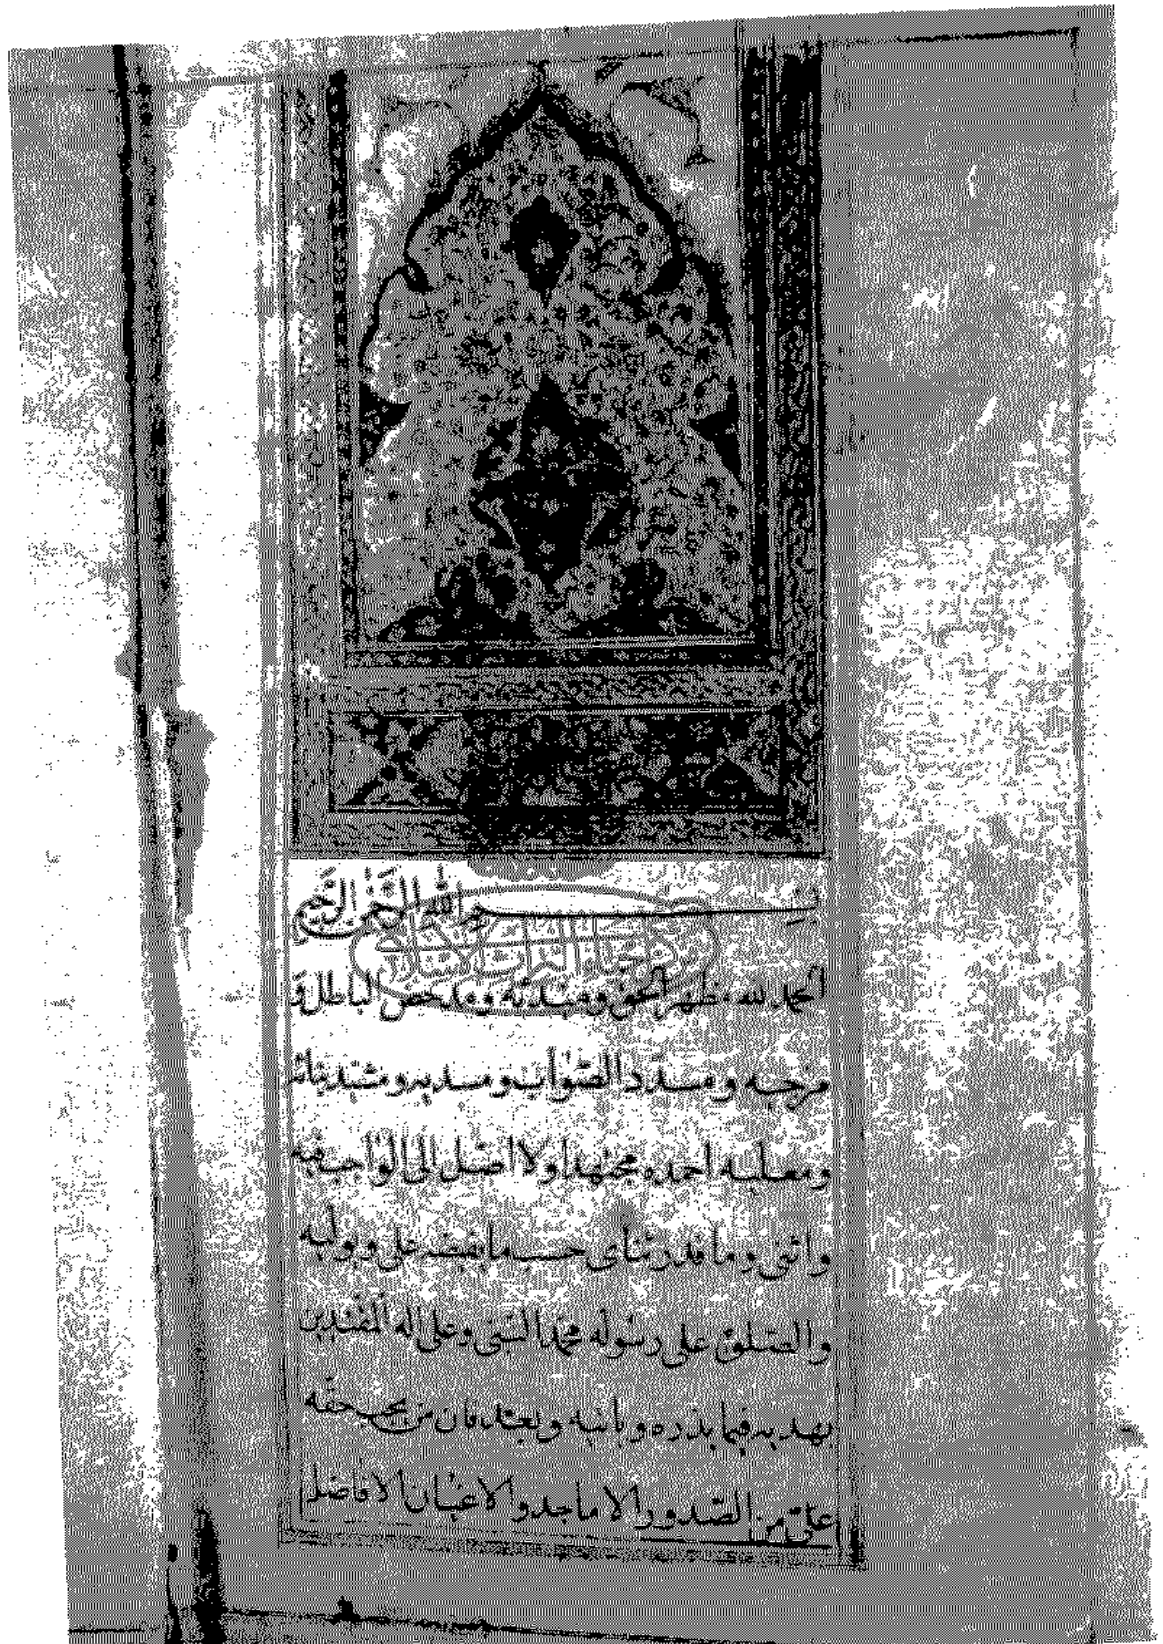 بسم الله الرحمن الرحيم
مركز احياء التراث الاسلامي
الحمد لله مظهر الحق ومبديه ومدحض الباطل و
مزجيه ومسدد الصواب ومسديه ومشيد بنائه
ومعليه احمده مجتهدا ولا اصل الى الواجب فيه
واثني وما قدر ثنأى حسب ما يفيضه علي ويوليه
والصلوة على رسوله محمد النبي وعلى اله المقتدين
بهديه فيما يذره ويأتيه وبعد فان من يجب حقه
علي من الصدور الاماجد والاعيان الافاضل